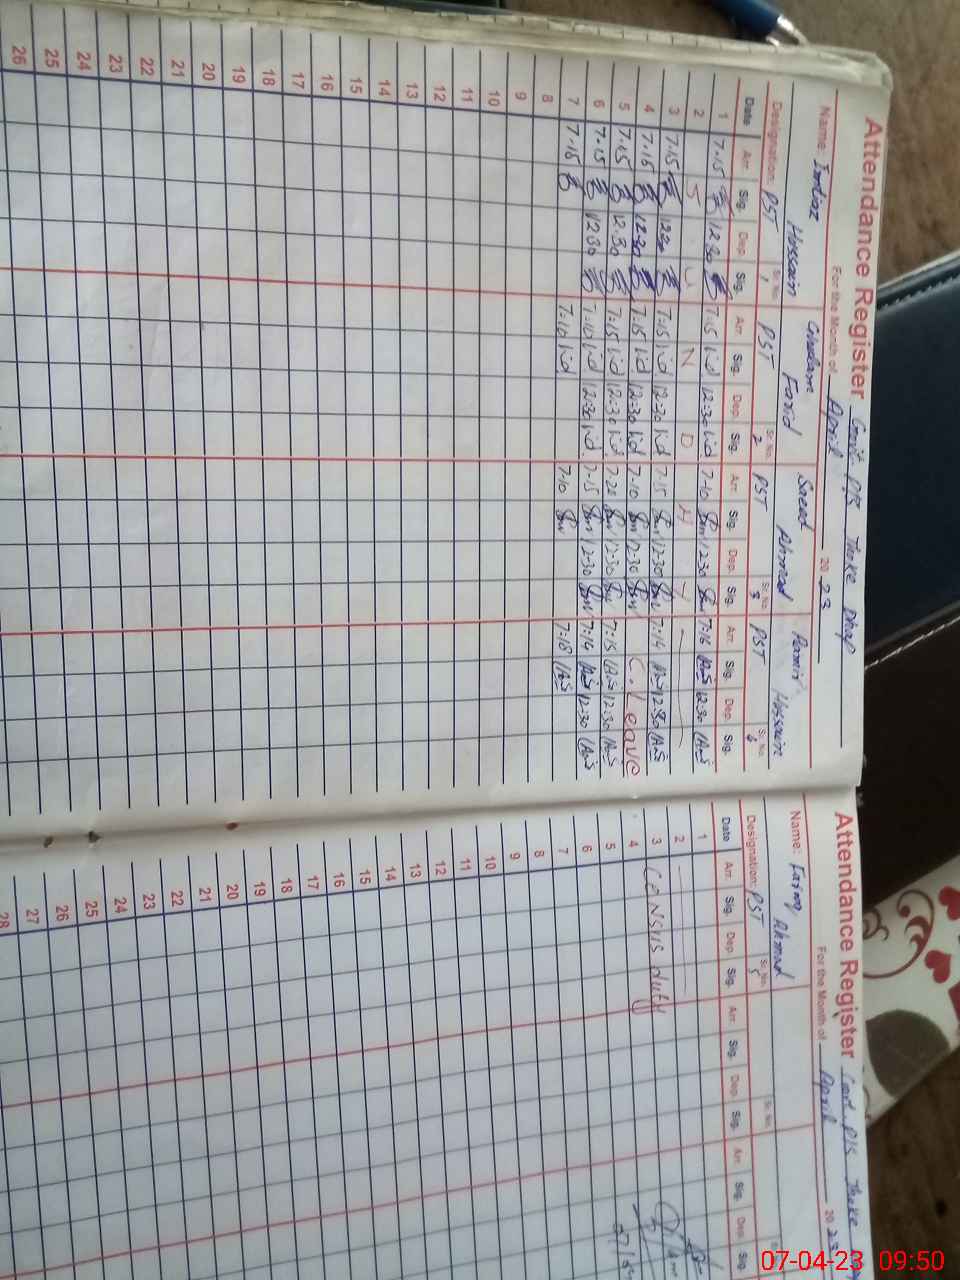 Attendance Register Govt. P/S Theke Dhap
For the Month of April 2023
Name: Imtiaz Hussain Ghulam Farid Saeed Ahmed Aamir Hussain
Designation: PST Sr. No. 1 PST Sr. No. 2 PST Sr. No. 3 PST Sr. No. 4
Date Arr. Sig. Dep. Sig. Arr. Sig. Dep. Sig. Arr. Sig. Dep. Sig. Arr. Sig. Dep. Sig.
1 7-15 12:30 7-15 12-30 7-10 12-30 7:16 12:30
2 S U N D A Y
3 7.15 12:30 7-15 12-30 7-15 12-30 7:14 12:30
4 7-15 12-30 7-15 12-30 7-10 12-30 C. Leave
5 7.15 12.30 7-15 12-30 7-20 12-30 7:15 12:30
6 7-15 12 30 7-10 12-30 7-15 12-30 7:14 12:30
7 7-15 7-10 7-10 7:18
8
9
10
11
12
13
14
15
16
17
18
19
20
21
22
23
24
25
26
Attendance Register Govt. P/S Theke
For the Month of April 2023
Name: Faiq Ahmad
Designation: PST Sr. No. 5 Sr. No.
Date Arr. Sig. Dep. Sig. Arr. Sig. Dep. Sig. Arr. Sig. Dep. Sig.
1
2
3 Census duty
4
5
6
7
8
9
10
11
12
13
14
15
16
17
18
19
20
21
22
23
24
25
26
27
28
07-04-23 09:50